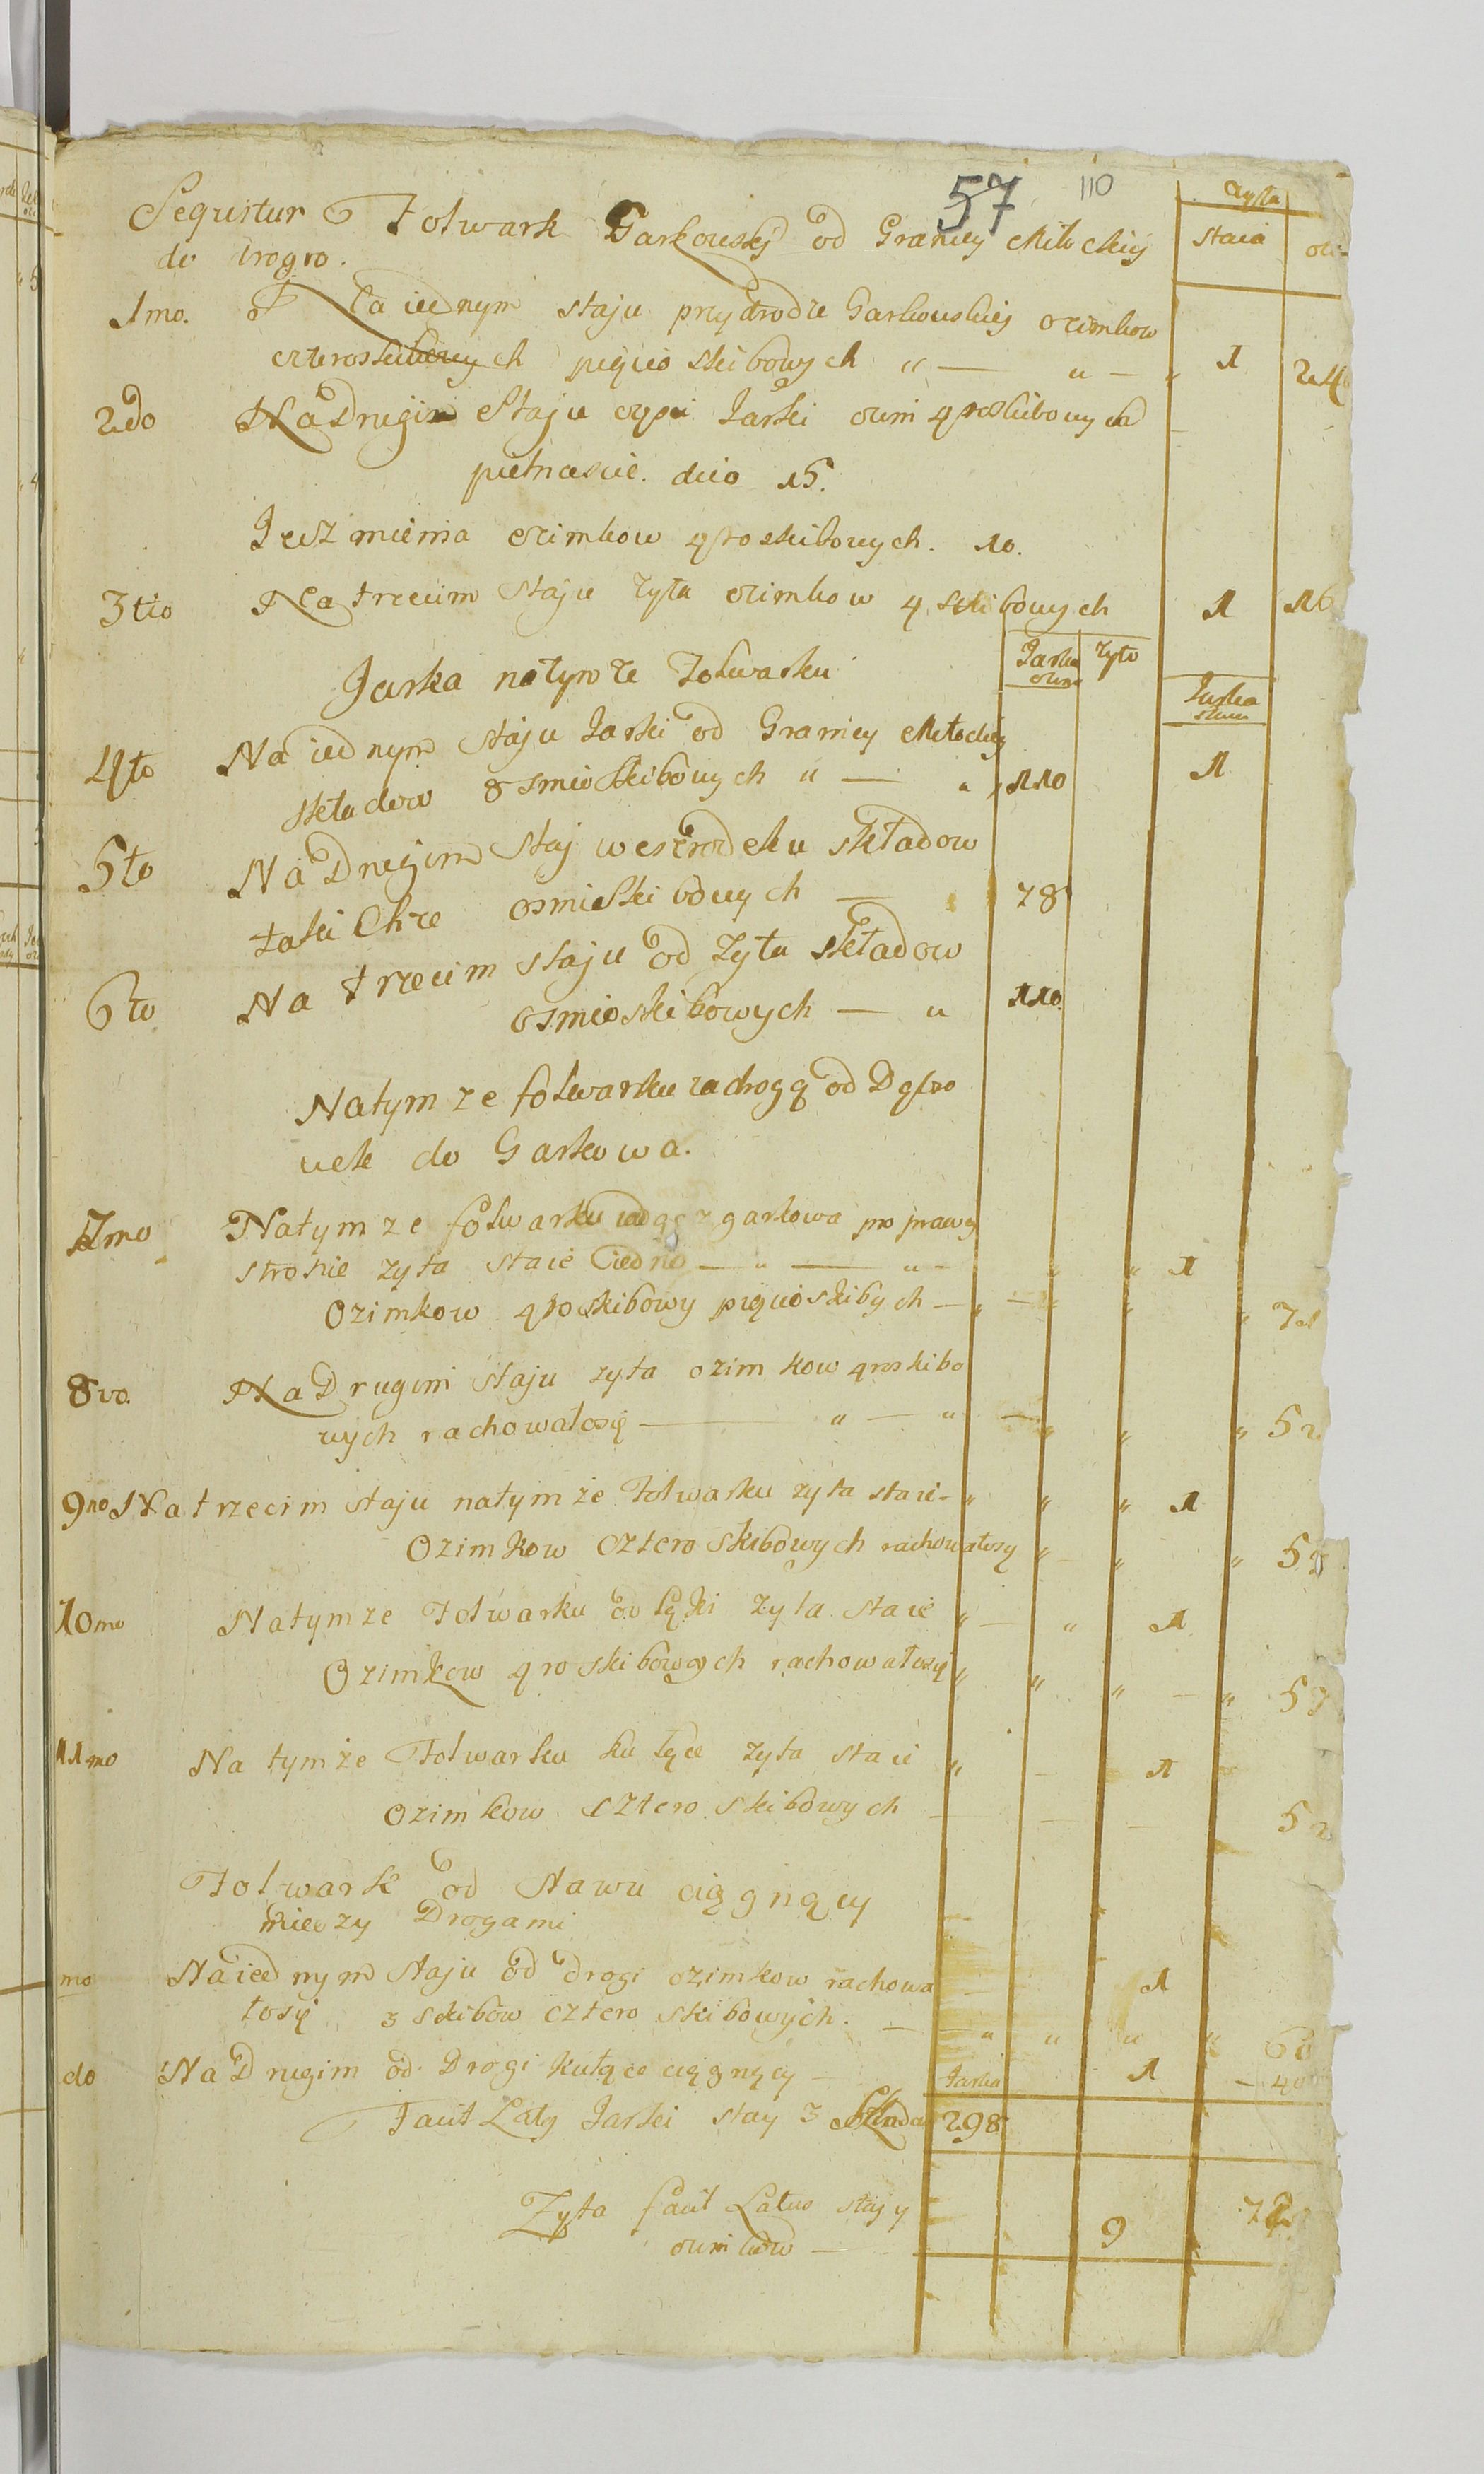 57 110
Sequitur Folwark Garkowskj od Granicy
do drogro.
Zyta
Staia ozi
1mo. Na iednym staju przy drodze Garkowskiej ozimkow
czteroskibowych pięcio skibowych " — " — " 1 24
2do Na Drugim Staju Jarki ozim 4roskibowych
pietnascie. dico 15.
Jęczmienia ozimkow 4roskibowych. 10.
3tio Na trzecim Staju zyta ozimkow 4 skibowych 1 16
Jarka na tym ze Folwarku
Jarka ozim Zyto Jarka staia
4to Na iednym staju Jarki od Granicy
składow 8 smioskibowych " — " 110 1
5to Na Drugim staj weszrodeku składow
takiChze osmioskibowych — 78
6to Na trzecim staju od Zyta składow
osmioskibowych — " 110.
Natym ze folwarku za drogą od Dąbro
wek do Garkowa.
7mo Natym ze folwarku z garkowa po prawy
stronie zyta staie iedno — " — " 1
Ozimkow 4roskibowy pięcioskibych — " — " 7
8vo. Na Drugim staju zyta ozimkow 4roskibo
wych rachowałosię — " — " — 52
9no Na trzecim staju natymże Folwarku zyta staie — " " " 1
Ozimkow cztero skibowych rachowałosię " — " " 5
10mo Natymze Folwarku od Łąki Zyta staie " — " 1
Ozimkow 4roskibowych rachowałosię " " " — " 57
11mo Na tymże Folwarku ku łące zyta staie " 1
Ozimkow cztero skibowych — 52
Folwark od Stawu ciągnący
miedzy Drogami
mo Na iednym staju od drogi ozimkow rachowa 1
łosię 3 skibow cztero skibowych. — " " " " 60
do Na Drugim od Drogi ku łące ciągnący — Jarka 1 — 40
Facit Laty Jarki stay 3 składow 298
Zyta facit Latus stajy
ozimkow — 9